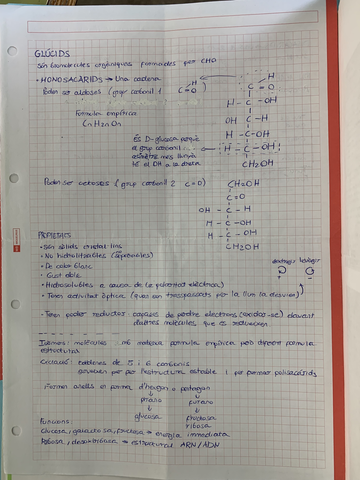 GLÚCIDS
Són biomolècules orgàniques formades per CHO
• MONOSACÀRIDS → Una cadena
Poden ser aldoses (grup carbonil 1 C=O H)
H
C=O
H-C-OH
OH C-H
H-C-OH
H-C-OH
CH2OH
Fórmula empírica
CnH2nOn
És D-glucosa perquè
el grup carbonil
asimètric més llunyà
té el OH a la dreta
Poden ser cetoses (grup carbonil 2 C=O)
CH2OH
C=O
OH-C-H
H-C-OH
H-C-OH
CH2OH
PROPIETATS
• Són sòlids cristal·lins
• No hidrolitzables
• De color blanc
• Gust dolç
• Hidrosolubles a causa de la polaritat elèctrica
• Tenen activitat òptica (quan són travessats per la llum la desvien)
• Tenen poder reductor: capaços de perdre electrons (oxidar-se) davant
d'altres molècules que es redueixen
Isòmers: molècules amb mateixa fórmula empírica però diferent fórmula
estructural
Ciclació: cadenes de 5 i 6 carbonis
per l'estructura estable i per formar polisacàrids
Formen anells en forma d'hexàgon o pentàgon
piranosa
furano
glucosa
fructosa
ribosa
Funcions:
Glucosa, galactosa, fructosa → energia immediata
Ribosa, desoxiribosa → estructural ARN/ADN